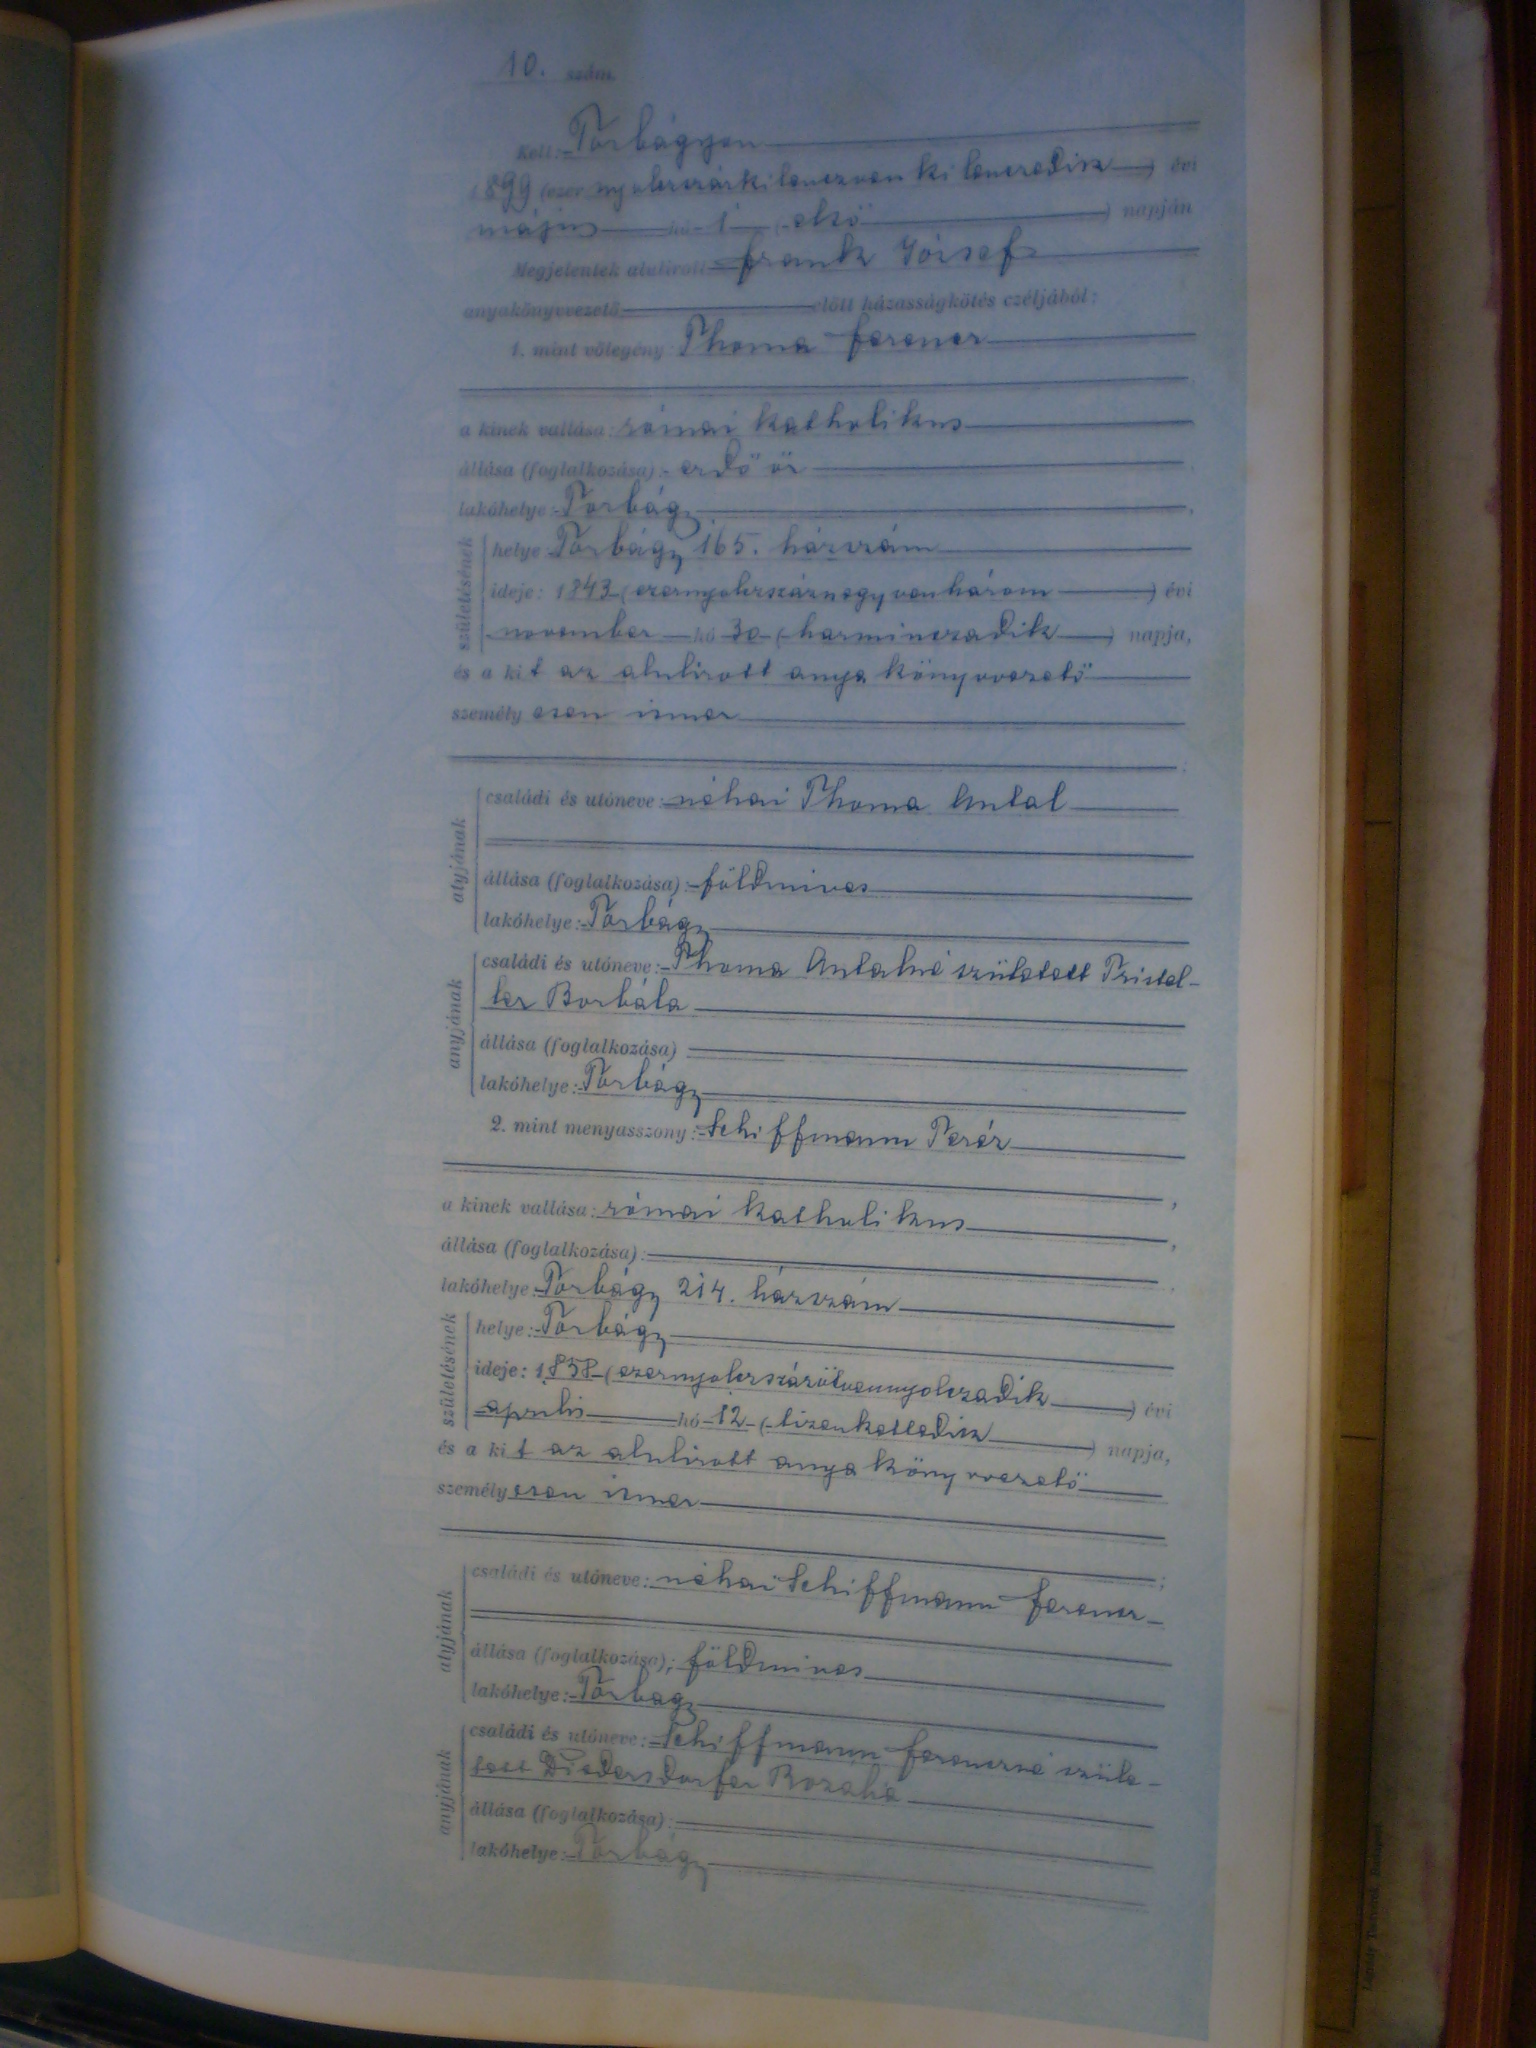 10. szám.
Kelt: Torbágyon
1899 (ezer nyolczszázkilenczvenkilenczedik) évi
május hó 1 (első) napján
Megjelentek alulírott Frank József
anyakönyvvezető előtt házasságkötés czéljából:
1. mint vőlegény: Thoma Ferencz
a kinek vallása: római katholikus
állása (foglalkozása): erdő őr
lakóhelye: Torbágy,
születésének
helye: Torbágy 165. házszám
ideje: 1843 (ezernyolczszáznegyvenhárom) évi
november hó 30 (harminczadik) napja,
és a kit az alulirott anyakönyvvezető
személyesen ismer
;
atyjának
családi és utóneve: néhai Thoma Antal
állása (foglalkozása): földmives
lakóhelye: Torbágy
anyjának
családi és utóneve: Thoma Antalné született Tristel-
ler Borbála
állása (foglalkozása)
lakóhelye: Torbágy
2. mint menyasszony: Schiffmann Teréz
,
a kinek vallása: római katholikus,
állása (foglalkozása): ,
lakóhelye: Torbágy 214. házszám
születésének
helye: Torbágy
ideje: 1858 (ezernyolczszázötvennyolczadik) évi
aprilis hó 12 (tizenkettedik) napja,
és a kit az alulirott anyakönyvvezető
személyesen ismer
;
atyjának
családi és utóneve: néhai Schiffmann Ferencz
állása (foglalkozása): földmives
lakóhelye: Torbagy
anyjának
családi és utóneve: Schiffmann Ferenczné szüle-
tett Diedersdorfer Rozália
állása (foglalkozása):
lakóhelye: Torbágy